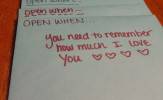 OPEN WHEN...
OPEN WHEN...
OPEN WHEN...
You need to remember
how much I LOVE
You ♡ ♡ ♡ ♡